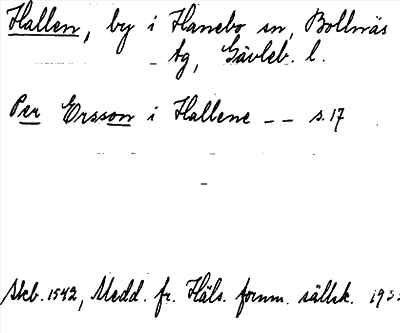 Hallen, by i Hanebo sn, Bollnäs
tg, Gävleb. l.
Per Ersson i Hallene -- s. 17
Skb. 1542, Medd. fr. Häls. fornm. sällsk. 193